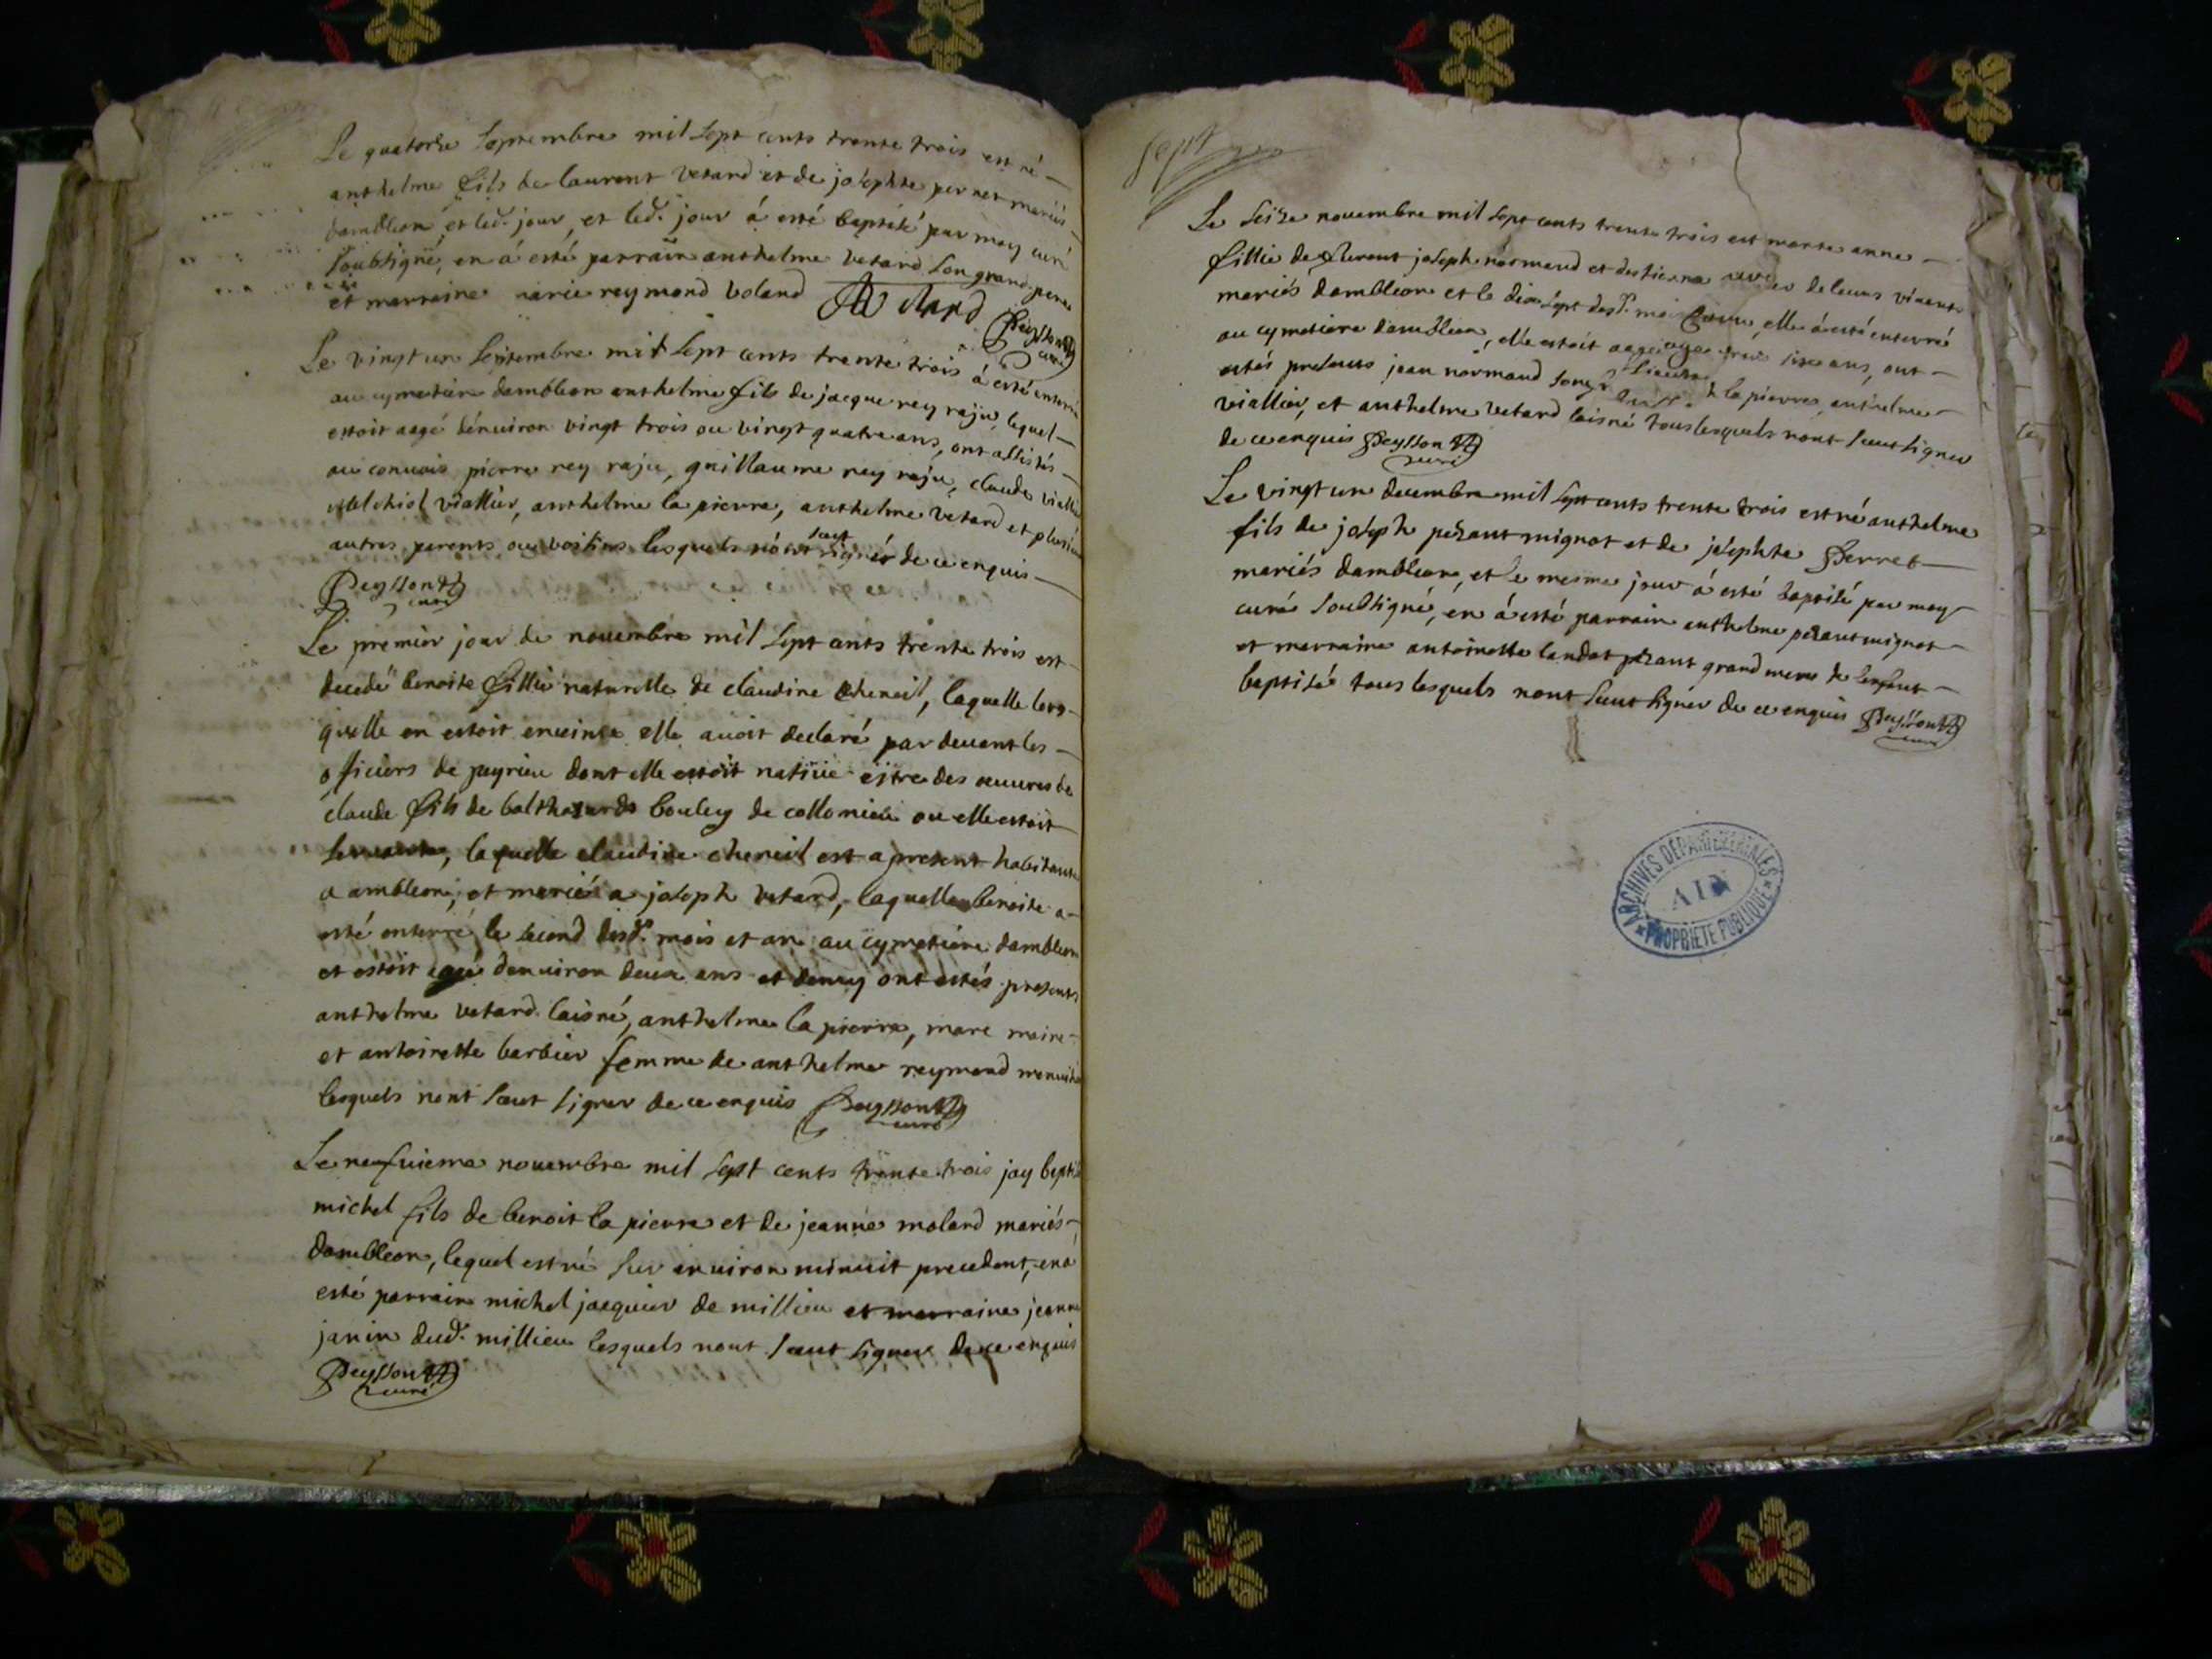 Le quatorze septembre mil sept cents trente trois est né
anthelme fils de laurent vetard et de josephte pernet mariés
dambleon et led. jour, et led. jour á esté baptisé par moy curé
soubsigné, en á esté parrain anthelme vetard son grand pere
et marraine marie reymond Voland
Peysson curé
Le vingt un septembre mil sept cents trente trois á esté enterré
au cymetiere dambleon anthelme fils de jacque rey raju, lequel
estoit aagé denuiron vingt trois ou vingt quatre ans, ont assistés
au conuois pierre rey raju, guillaume rey raju, claude viallier
melchiol viallier, anthelme la pierre, anthelme vetard et plusieurs
autres parents ou voisins lesquels nont sçeut signér de ce enquis
Peysson curé
Le premier jour de nouembre mil sept cents trente trois est
decedé benoite fillie naturelle de claudine cheneil, laquelle lors
quelle en estoit enceinte elle auoit declaré par deuant les
officiers de peyrieu dont elle estoit natiue estre des oeuures de
claude fils de balthasards bouley de collomieu ou elle estoit
seruante, laquelle claudine cheneil est a present habitante
a ambleon, et mariée a joseph vetard, laquelle benoite a
esté enterré le second desd. mois et an au cymetiere dambleon
et estoit agé denuiron deux ans et demy ont estés presents
anthelme vetard laisné, anthelme la pierre, marc moine
et antoinette barbier femme de anthelme reymond
lesquels nont sceut signer de ce enquis Peysson curé
Le neufuieme nouembre mil sept cents trente trois jay baptisé
michel fils de benoit la pierre et de jeanne molard mariés
dambleon, lequel est né sur enuiron minuit precedent, en á
esté parrain michel jacquier de millieu et marraine jeanne
janin dud. millieu lesquels nont sceut signer de ce enquis
Peysson curé
sept
Le seize nouembre mil sept cents trente trois est morte anne
fillie de laurent joseph normand et destiena de leurs viuants
mariés dambleon et le dix sept desd. mois elle á esté enterré
au cymetiere dambleon, elle estoit aagé ans, ont
estés presents jean normand son la pierre anthelme
viallier, et anthelme vetard laisné tous lesquels nont sceut signer
de ce enquis Peysson curé
Le vingt un decembre mil sept cents trente trois est né anthelme
fils de joseph pezant mignot et de josephte Perret
mariés dambleon, et le mesme jour á esté baptisé par moy
curé soubsigné, en á esté parrain anthelme pezant mignot
et marraine antoinette landot pezant grand mere de lenfant
baptisé tous lesquels nont sceut signer de ce enquis Peysson
curé
ARCHIVES DÉPARTEMENTALES
AIN
PROPRIÉTÉ PUBLIQUE